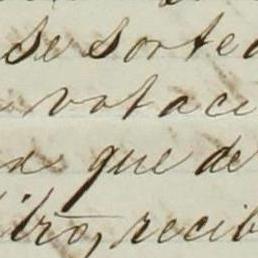 se sorteo
votaci
que de
libro, recib